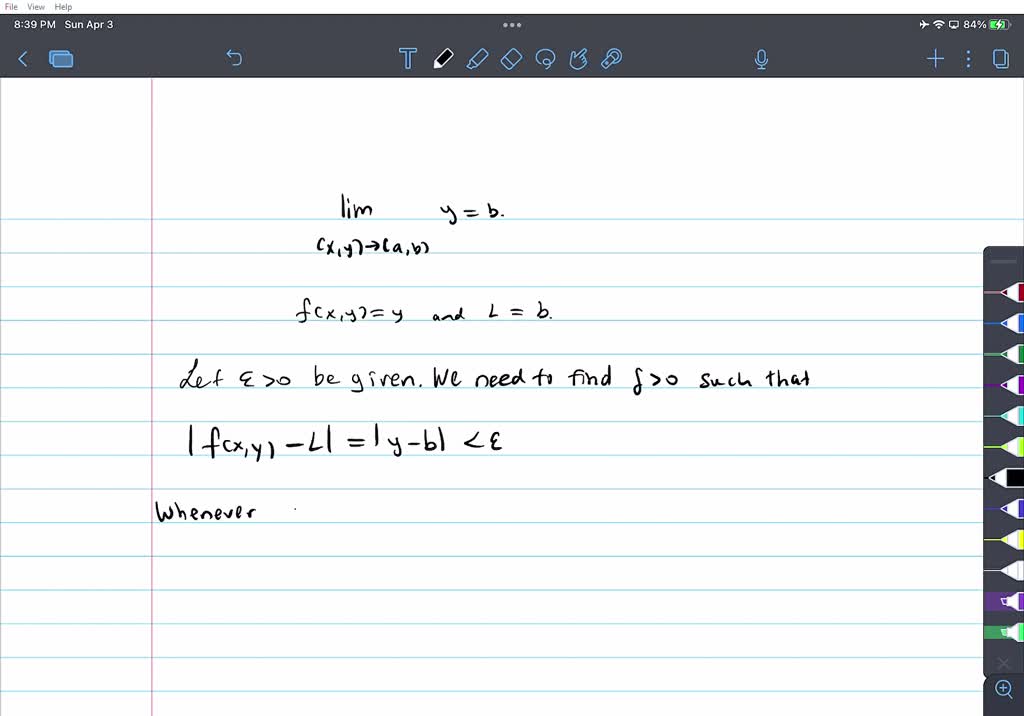 File View Help
8:39 PM Sun Apr 3
84%
T
lim y = b.
(x,y)→(a,b)
f(x,y) = y and L = b.
Let ε >0 be given. We need to find δ>0 such that
|f(x,y) - L| = |y-b| < ε
Whenever